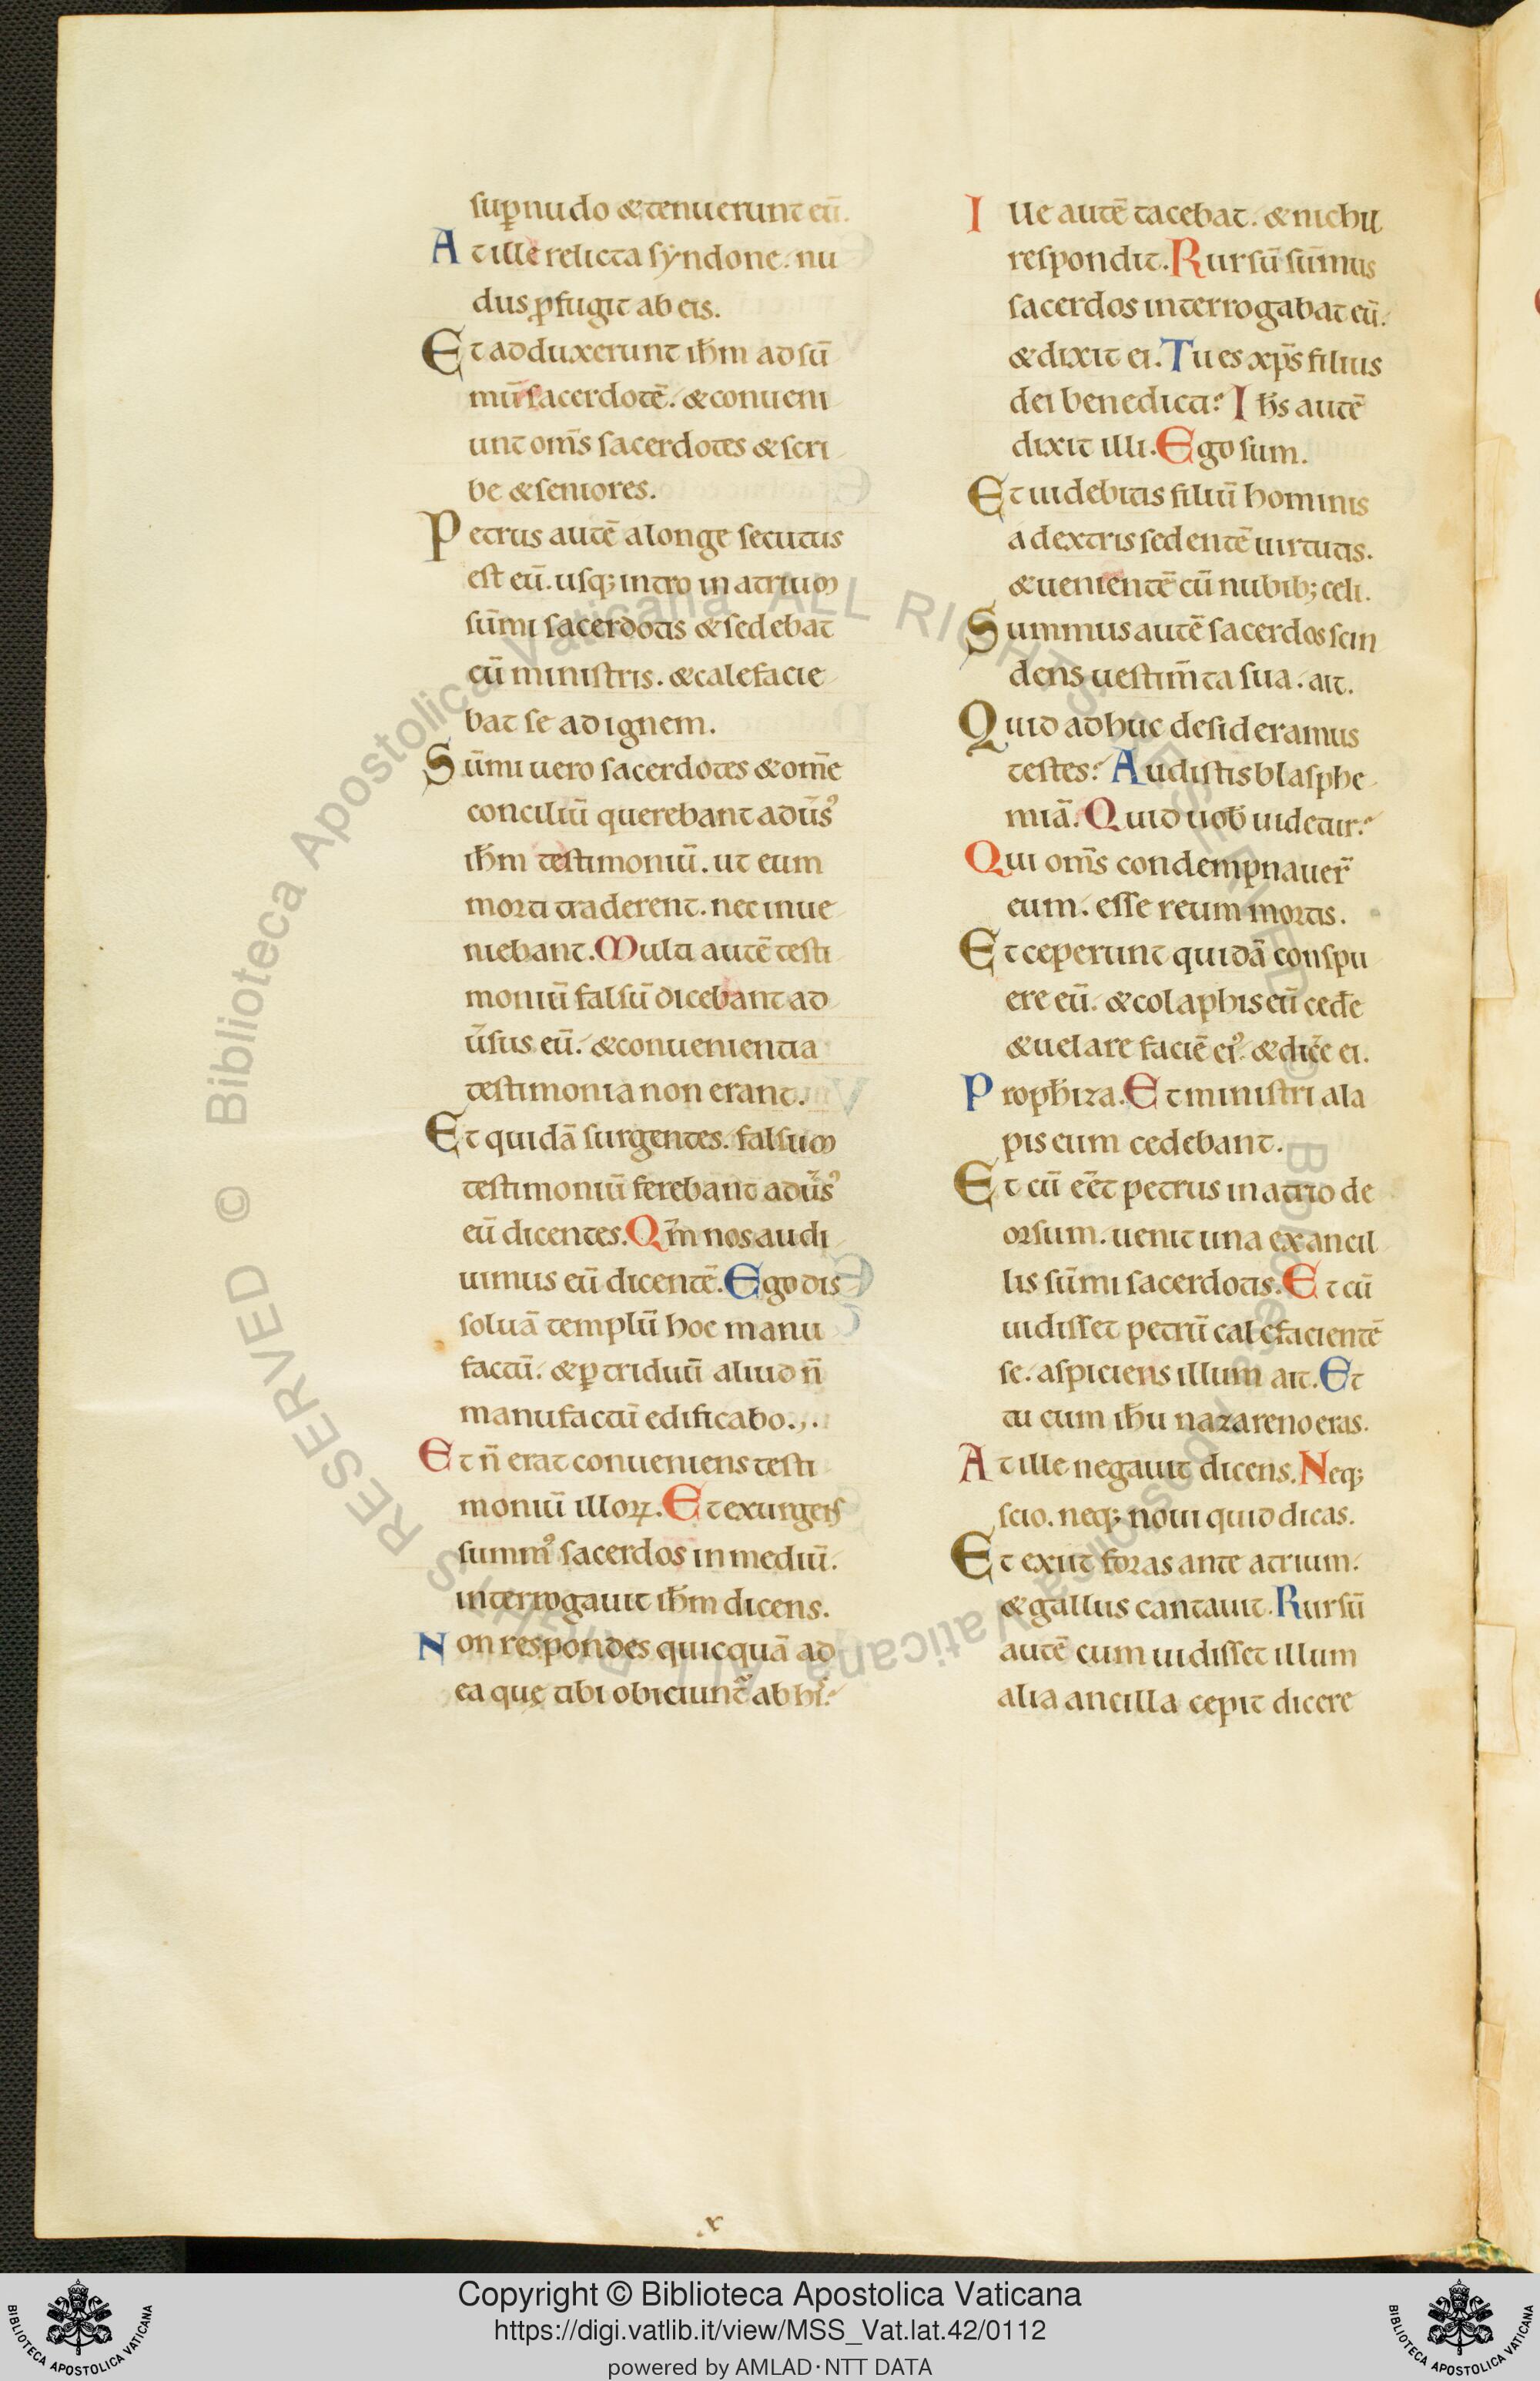 sup̱nudo & tenuerunt eū.
At ille relicta syndone. nu
dus ꝓfugit ab eis.
Et adduxerunt ihm̄ ad sū
mū sacerdotē. & conueni
unt om̄s sacerdotes & scri
be & seniores.
Petrus autē a longe secutus
est eū. usq; intro in atrium
sūmi sacerdotis & sedebat
cū ministris. & calefacie
bat se ad ignem.
Sūmi uero sacerdotes & om̄e
conciliū querebant adūs᾿
ihm̄ testimoniū. ut eum
morti traderent. nec inue
niebant. Multi autē testi
moniū falsū dicebant ad
ūsus eū. & conuenientia
testimonia non erant.
Et quidā surgentes. falsum
testimoniū ferebant adūs᾿
eū dicentes. Qm̄ nos audi
uimus eū dicentē. Ego dis
soluā templū hoc manu
factū. & ꝑ triduū aliud n̄
manufactū edificabo.
Et n̄ erat conueniens testi
moniū illoꝝ. Et exurgens
summ᾿ sacerdos in mediū.
interrogauit ihm̄ dicens.
Non respondes quicquā ad
ea que tibi obiciunt᾿ ab his?
Ille autē tacebat. & nichil
respondit. Rursū sūmus
sacerdos interrogabat eū.
& dixit ei. Tu es xp̄s filius
dei benedicti? Ihs̄ autē
dixit illi. Ego sum.
Et uidebitis filiū hominis
a dextris sedentē uirtutis.
& uenientē cū nubib; celi.
Summus autē sacerdos scin
dens uestim̄ta sua. ait.
Quid adhuc desideramus
testes? Audistis blasphe
miā. Quid uob̄ uidetur?
Qui om̄s condempnauer̄
eum. esse reum mortis.
Et ceperunt quidā conspu
ere eū. & colaphis eū cedēe
& uelare faciē ei᾿. & dicēe ei.
Proph̄iza. Et ministri ala
pis eum cedebant.
Et cū eēt petrus in atrio de
orsum. uenit una ex ancil
lis sūmi sacerdotis. Et cū
uidisset petrū calefacientē
se. aspiciens illum ait. Et
tu cum ihu̅ nazareno eras.
At ille negauit dicens. Neq;
scio. neq; noui quid dicas.
Et exiit foras ante atrium.
& gallus cantauit. Rursū
autē cum uidisset illum
alia ancilla cepit dicere
x
© Biblioteca Apostolica Vaticana ALL RIGHTS RESERVED
© Biblioteca Apostolica Vaticana ALL RIGHTS RESERVED
Copyright © Biblioteca Apostolica Vaticana
https://digi.vatlib.it/view/MSS_Vat.lat.42/0112
powered by AMLAD·NTT DATA
BIBLIOTECA APOSTOLICA VATICANA
BIBLIOTECA APOSTOLICA VATICANA